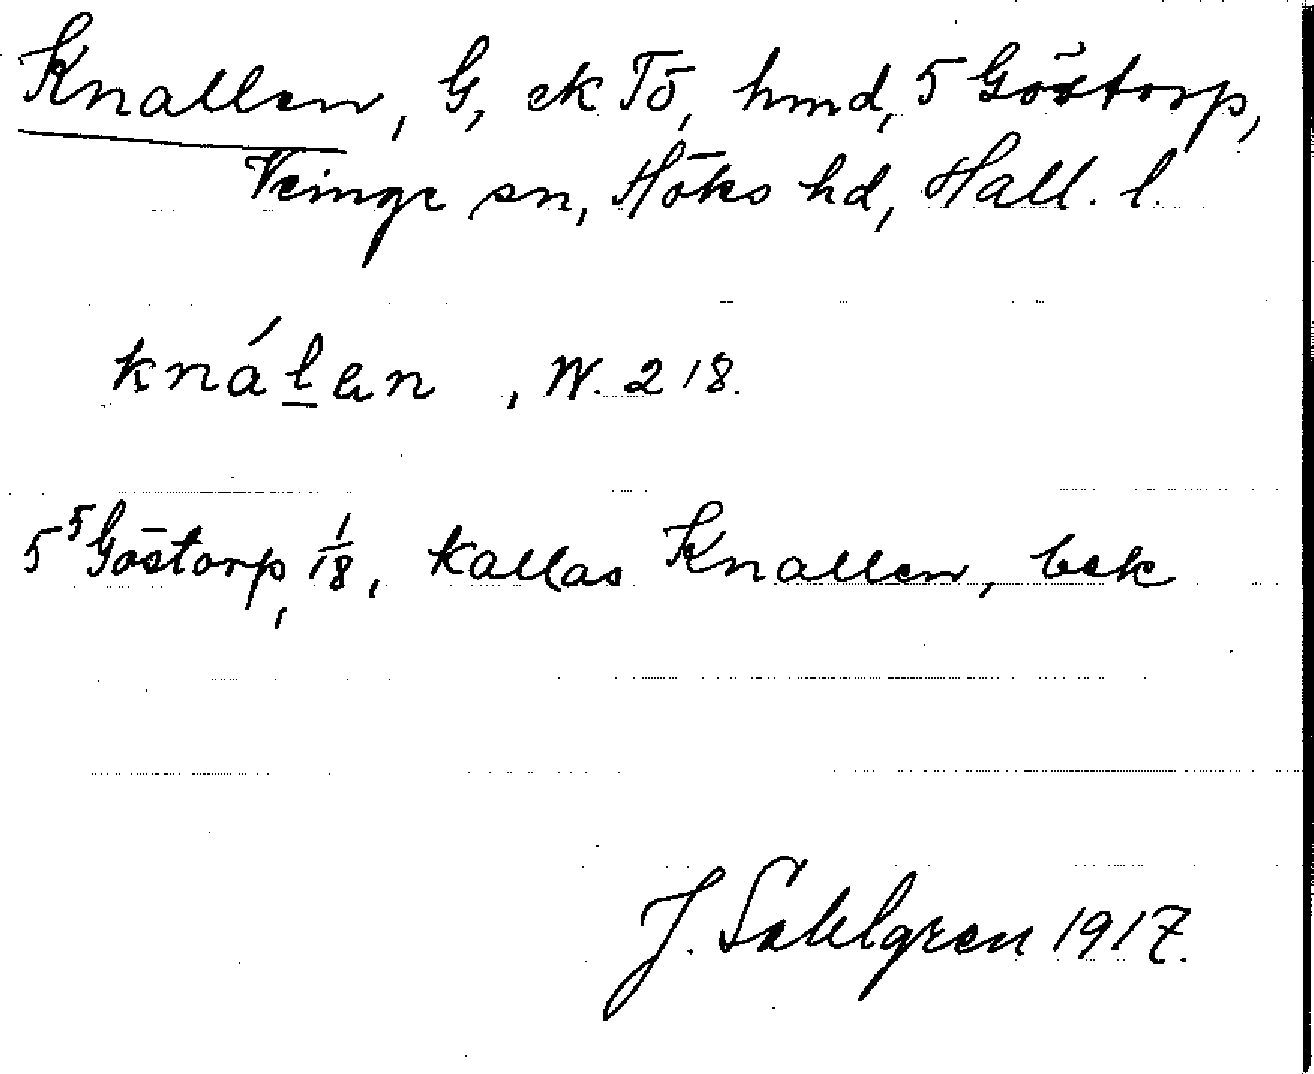 Knallen, G, ek Tö, hmd, 5 Göstorp,
Veinge sn, Höks hd, Hall. l.
knálan, W. 218.
5⁵ Göstorp, 1/18, kallas Knallen, bek
J. Sahlgren 1917.